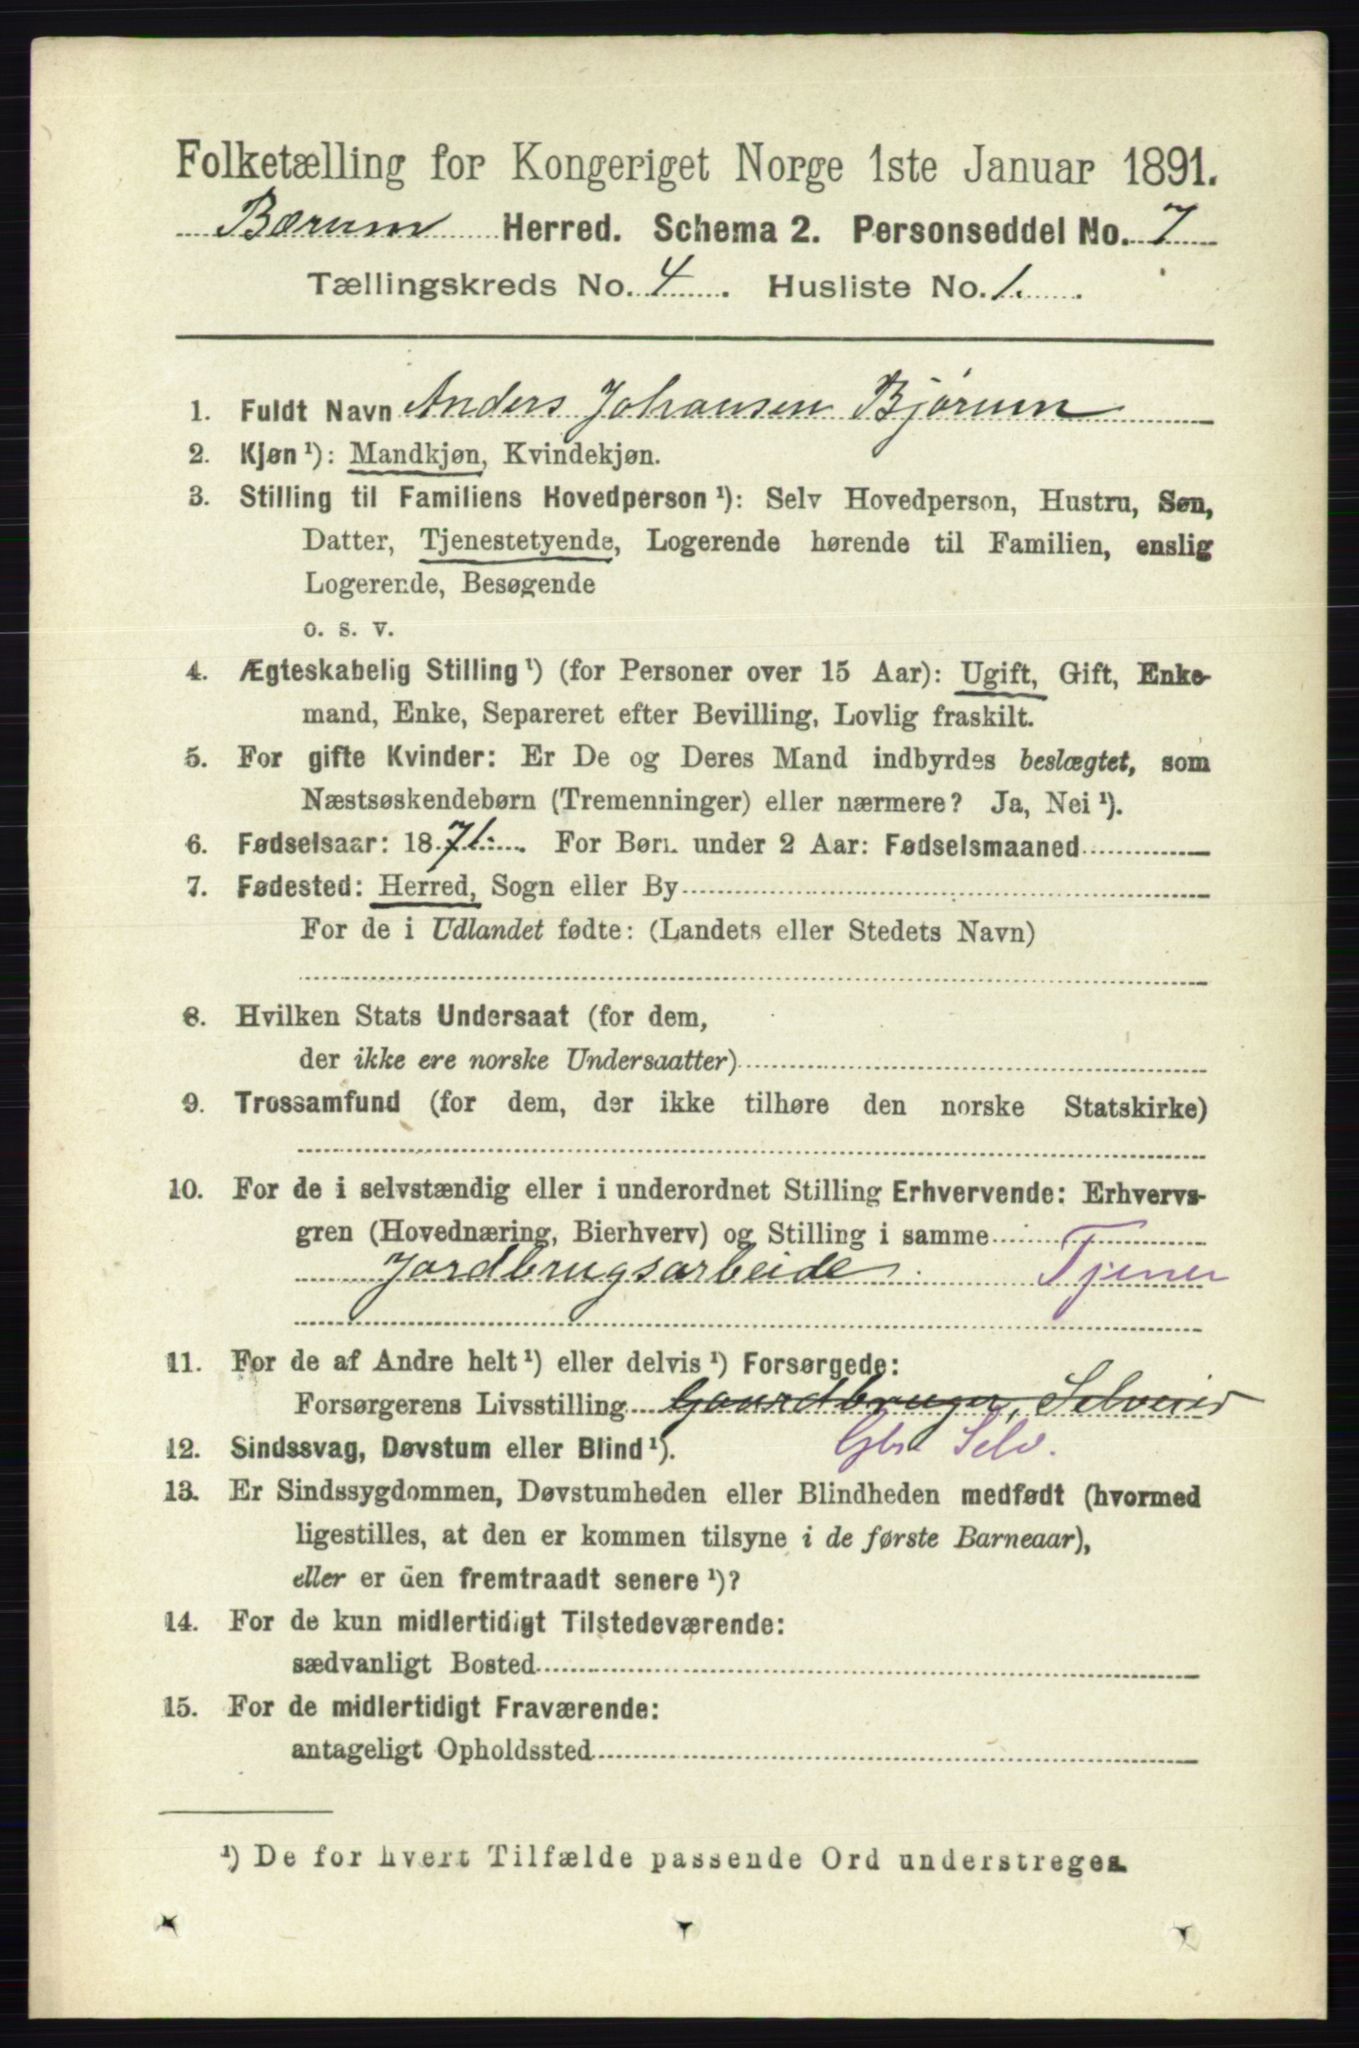 Folketælling for Kongeriget Norge 1ste Januar 1891.
Bærum Herred. Schema 2. Personseddel No. 7
Tællingskreds No. 4. Husliste No. 1.
1. Fuldt Navn Anders Johansen Bjørum
2. Kjøn ¹): Mandkjøn, Kvindekjøn.
3. Stilling til Familiens Hovedperson ¹): Selv Hovedperson, Hustru, Søn,
Datter, Tjenestetyende, Logerende hørende til Familien, enslig
Logerende, Besøgende
o. s. v.
4. Ægteskabelig Stilling ¹) (for Personer over 15 Aar): Ugift, Gift, Enke-
mand, Enke, Separeret efter Bevilling, Lovlig fraskilt.
5. For gifte Kvinder: Er De og Deres Mand indbyrdes beslægtet, som
Næstsøskendebørn (Tremenninger) eller nærmere? Ja, Nei ¹).
6. Fødselsaar: 1871. For Børn under 2 Aar: Fødselsmaaned
7. Fødested: Herred, Sogn eller By
For de i Udlandet fødte: (Landets eller Stedets Navn)
8. Hvilken Stats Undersaat (for dem,
der ikke ere norske Undersaatter)
9. Trossamfund (for dem, der ikke tilhøre den norske Statskirke)
10. For de i selvstændig eller i underordnet Stilling Erhvervende: Erhvervs-
gren (Hovednæring, Bierhverv) og Stilling i samme
Jordbrugsarbeide. Tjener
11. For de af Andre helt ¹) eller delvis ¹) Forsørgede:
Forsørgerens Livsstilling Gaardbruger, Selveier
12. Sindssvag, Døvstum eller Blind ¹). Gbr Selv.
13. Er Sindssygdommen, Døvstumheden eller Blindheden medfødt (hvormed
ligestilles, at den er kommen tilsyne i de første Barneaar),
eller er den fremtraadt senere ¹)?
14. For de kun midlertidigt Tilstedeværende:
sædvanligt Bosted
15. For de midlertidigt Fraværende:
antageligt Opholdssted
¹) De for hvert Tilfælde passende Ord understreges.